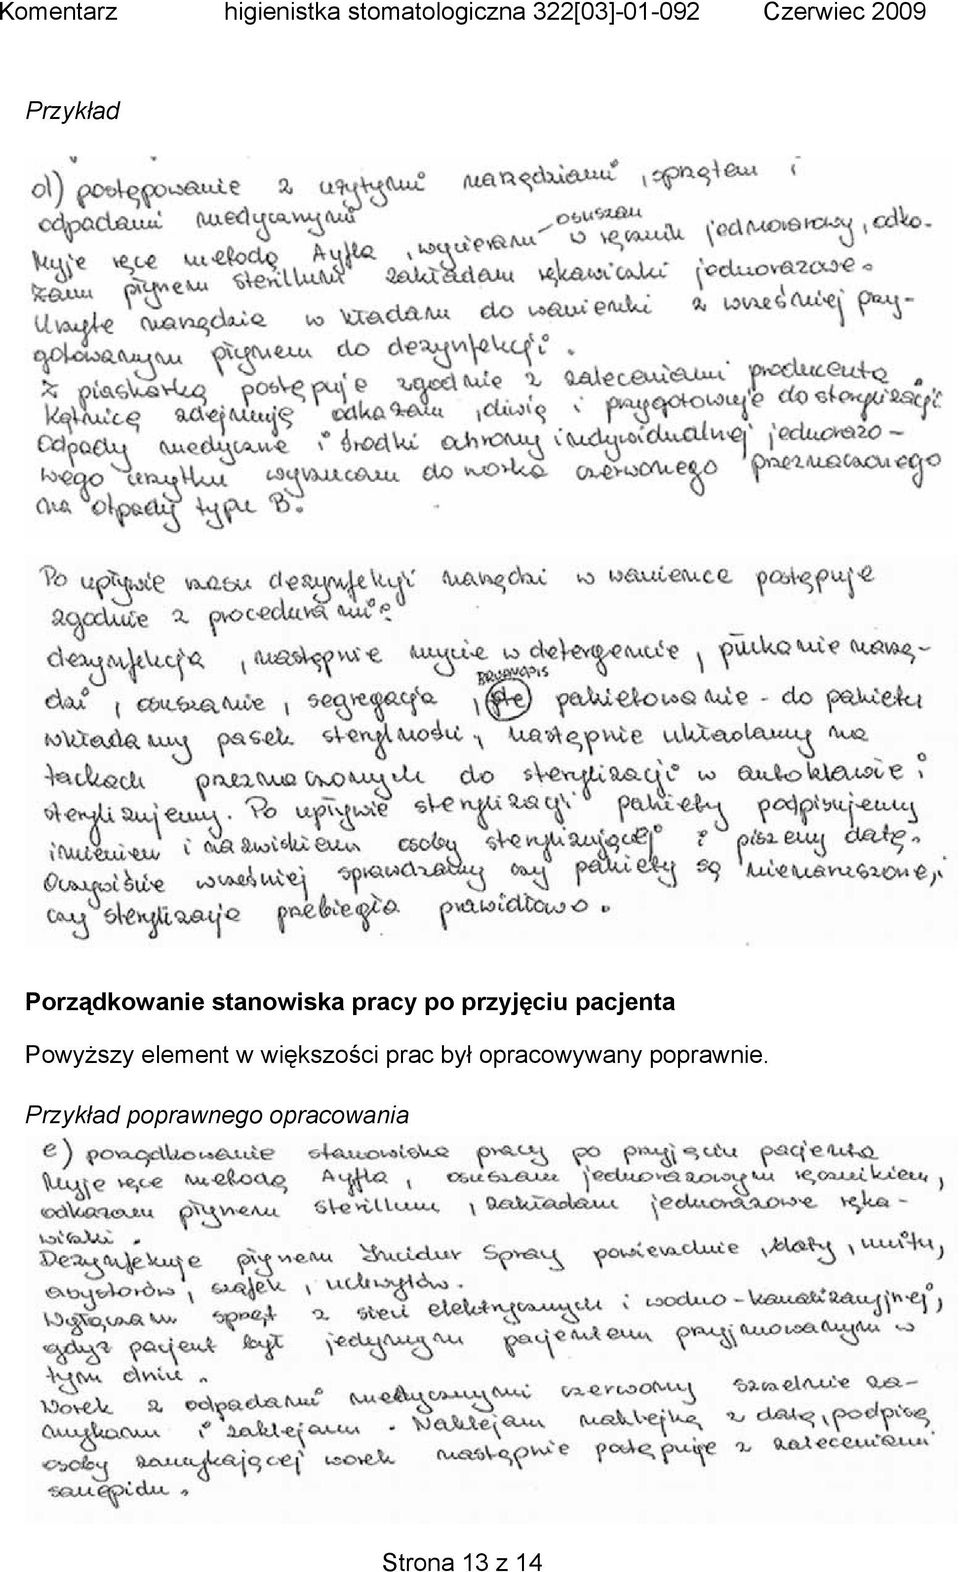 Komentarz higienistka stomatologiczna 322[03]-01-092 Czerwiec 2009
Przykład
d) postępowanie z użytymi narzędziami, sprzętem i
odpadami medycznymi
Myję ręce metodą Ayfla, wycieram osuszam w ręcznik jednorazowy, odka-
żam płynem sterillium zakładam rękawiczki jednorazowe.
Użyte narzędzia wkładam do wanienki z wcześniej przy-
gotowanym płynem do dezynfekcji.
Z piaskarką postępuję zgodnie z zaleceniami producenta.
Kątnicę zdejmuję odkażam, oliwię i przygotowuję do sterylizacji.
Odpady medyczne i środki ochrony indywidualnej jednorazo-
wego użytku wyrzucam do worka czerwonego przeznaczonego
na otpady typu B.
Po upływie czasu dezynfekcji narzędzi w wanience postępuję
zgodnie z procedurami:
dezynfekcja, następnie mycie w detergencie, płukanie narzę-
dzi, osuszanie, segregacja, BRUDNOPIS pakietowanie - do pakietu
wkładamy pasek sterylności, następnie układamy na
tackach przeznaczonych do sterylizacji w autoklawie i
sterylizujemy. Po upływie sterylizacji pakiety podpisujemy
imieniem i nazwiskiem osoby sterylizującej i piszemy datę.
Oczywiście wcześniej sprawdzamy czy pakiety są nienaruszone,
czy sterylizacja przebiegła prawidłowo.
Porządkowanie stanowiska pracy po przyjęciu pacjenta
Powyższy element w większości prac był opracowywany poprawnie.
Przykład poprawnego opracowania
e) porządkowanie stanowiska pracy po przyjęciu pacjenta
Myję ręce metodą Ayfla, osuszam jednorazowym ręcznikiem,
odkażam płynem sterillium, zakładam jednorazowe ręka-
wiczki.
Dezynfekuję płynem Incidur Spray powierzchnie, blaty, unitu,
asystorów, szafek, uchwytów.
Wyłączam sprzęt z sieci elektrycznych i wodno-kanalizacyjnej,
gdyż pacjent był jedynym pacjentem przyjmowanym w
tym dniu.
Worek z odpadami medycznymi czerwony szczelnie za-
mykam i zaklejam. Naklejam naklejkę z datą, podpisą
osoby zamykającej worek następnie postępuję z zaleceniami
sanepidu.
Strona 13 z 14